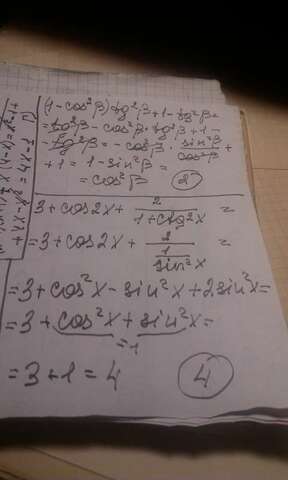 (1-cos²β)tg²β+1-tg²β=
=tg²β-cos²β·tg²β+1-
-tg²β=-cos²β·sin²β/cos²β+
+1=1-sin²β=
=cos²β
2
3+cos2x+2/(1+ctg²x)=
=3+cos2x+2/(1/sin²x)=
=3+cos²x-sin²x+2sin²x=
=3+cos²x+sin²x=
=1
=3+1=4
4